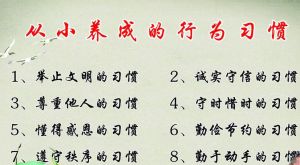 从小养成的行为习惯
1、举止文明的习惯 2、诚实守信的习惯
3、尊重他人的习惯 4、守时惜时的习惯
5、懂得感恩的习惯 6、勤俭节约的习惯
7、遵守秩序的习惯 8、勤于动手的习惯